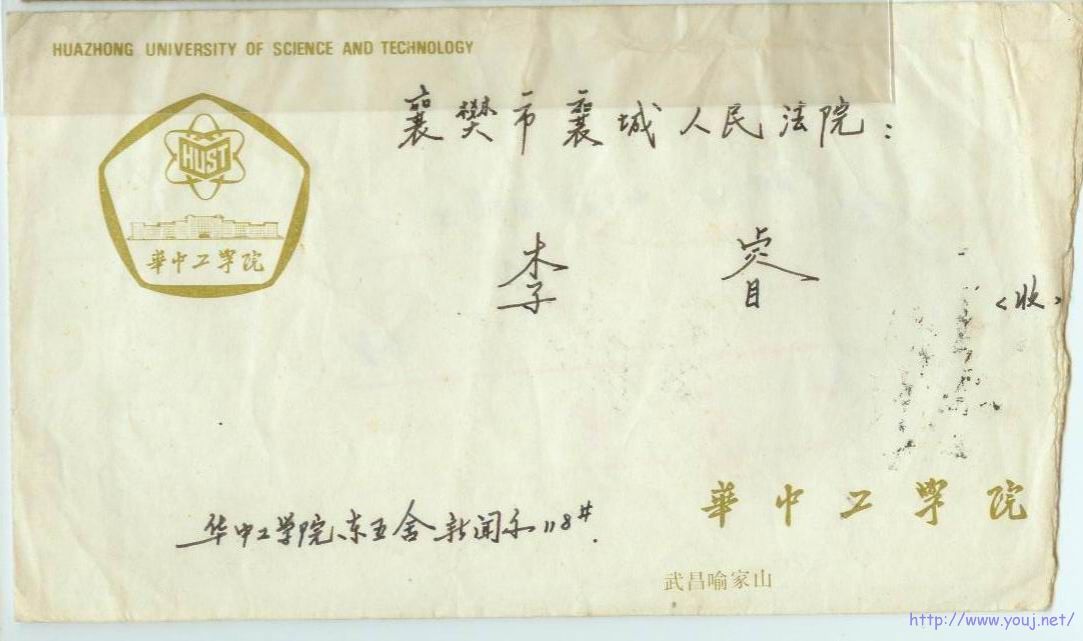 HUAZHONG UNIVERSITY OF SCIENCE AND TECHNOLOGY
襄樊市襄城人民法院：
HUST
華中工學院
李睿
（收）
華中工學院
华中工学院东五舍新闻系118#
武昌喻家山
http://www.youj.net/